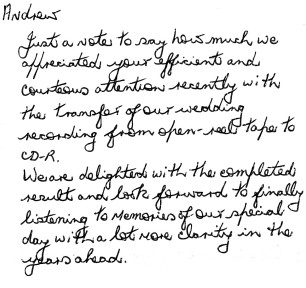 Andrew
Just a note to say how much we
appreciated your efficient and
courteous attention recently with
the transfer of our wedding
recording from open-reel tape to
CD-R.
We are delighted with the completed
result and look forward to finally
listening to memories of our special
day with a lot more clarity in the
years ahead.